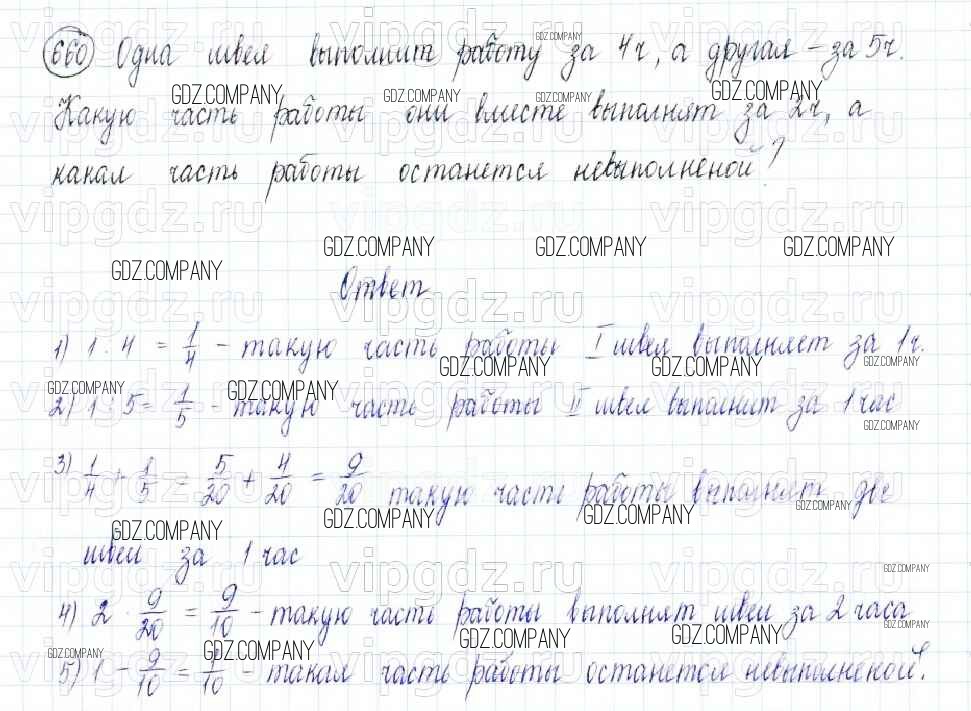 660 Одна швея выполнит работу за 4ч, а другая – за 5ч.
Какую часть работы они вместе выполнят за 2ч, а
какая часть работы останется невыполненой?
Ответ
1) 1 : 4 = 1/4 – такую часть работы I швея выполняет за 1ч.
2) 1 : 5 = 1/5 – такую часть работы II швея выполнит за 1 час
3) 1/4 + 1/5 = 5/20 + 4/20 = 9/20 такую часть работы выполнят две
швеи за 1 час
4) 2 · 9/20 = 9/10 – такую часть работы выполнят швеи за 2 часа
5) 1 – 9/10 = 1/10 – такая часть работы останется невыполненой.
vipgdz.ru
GDZ.COMPANY